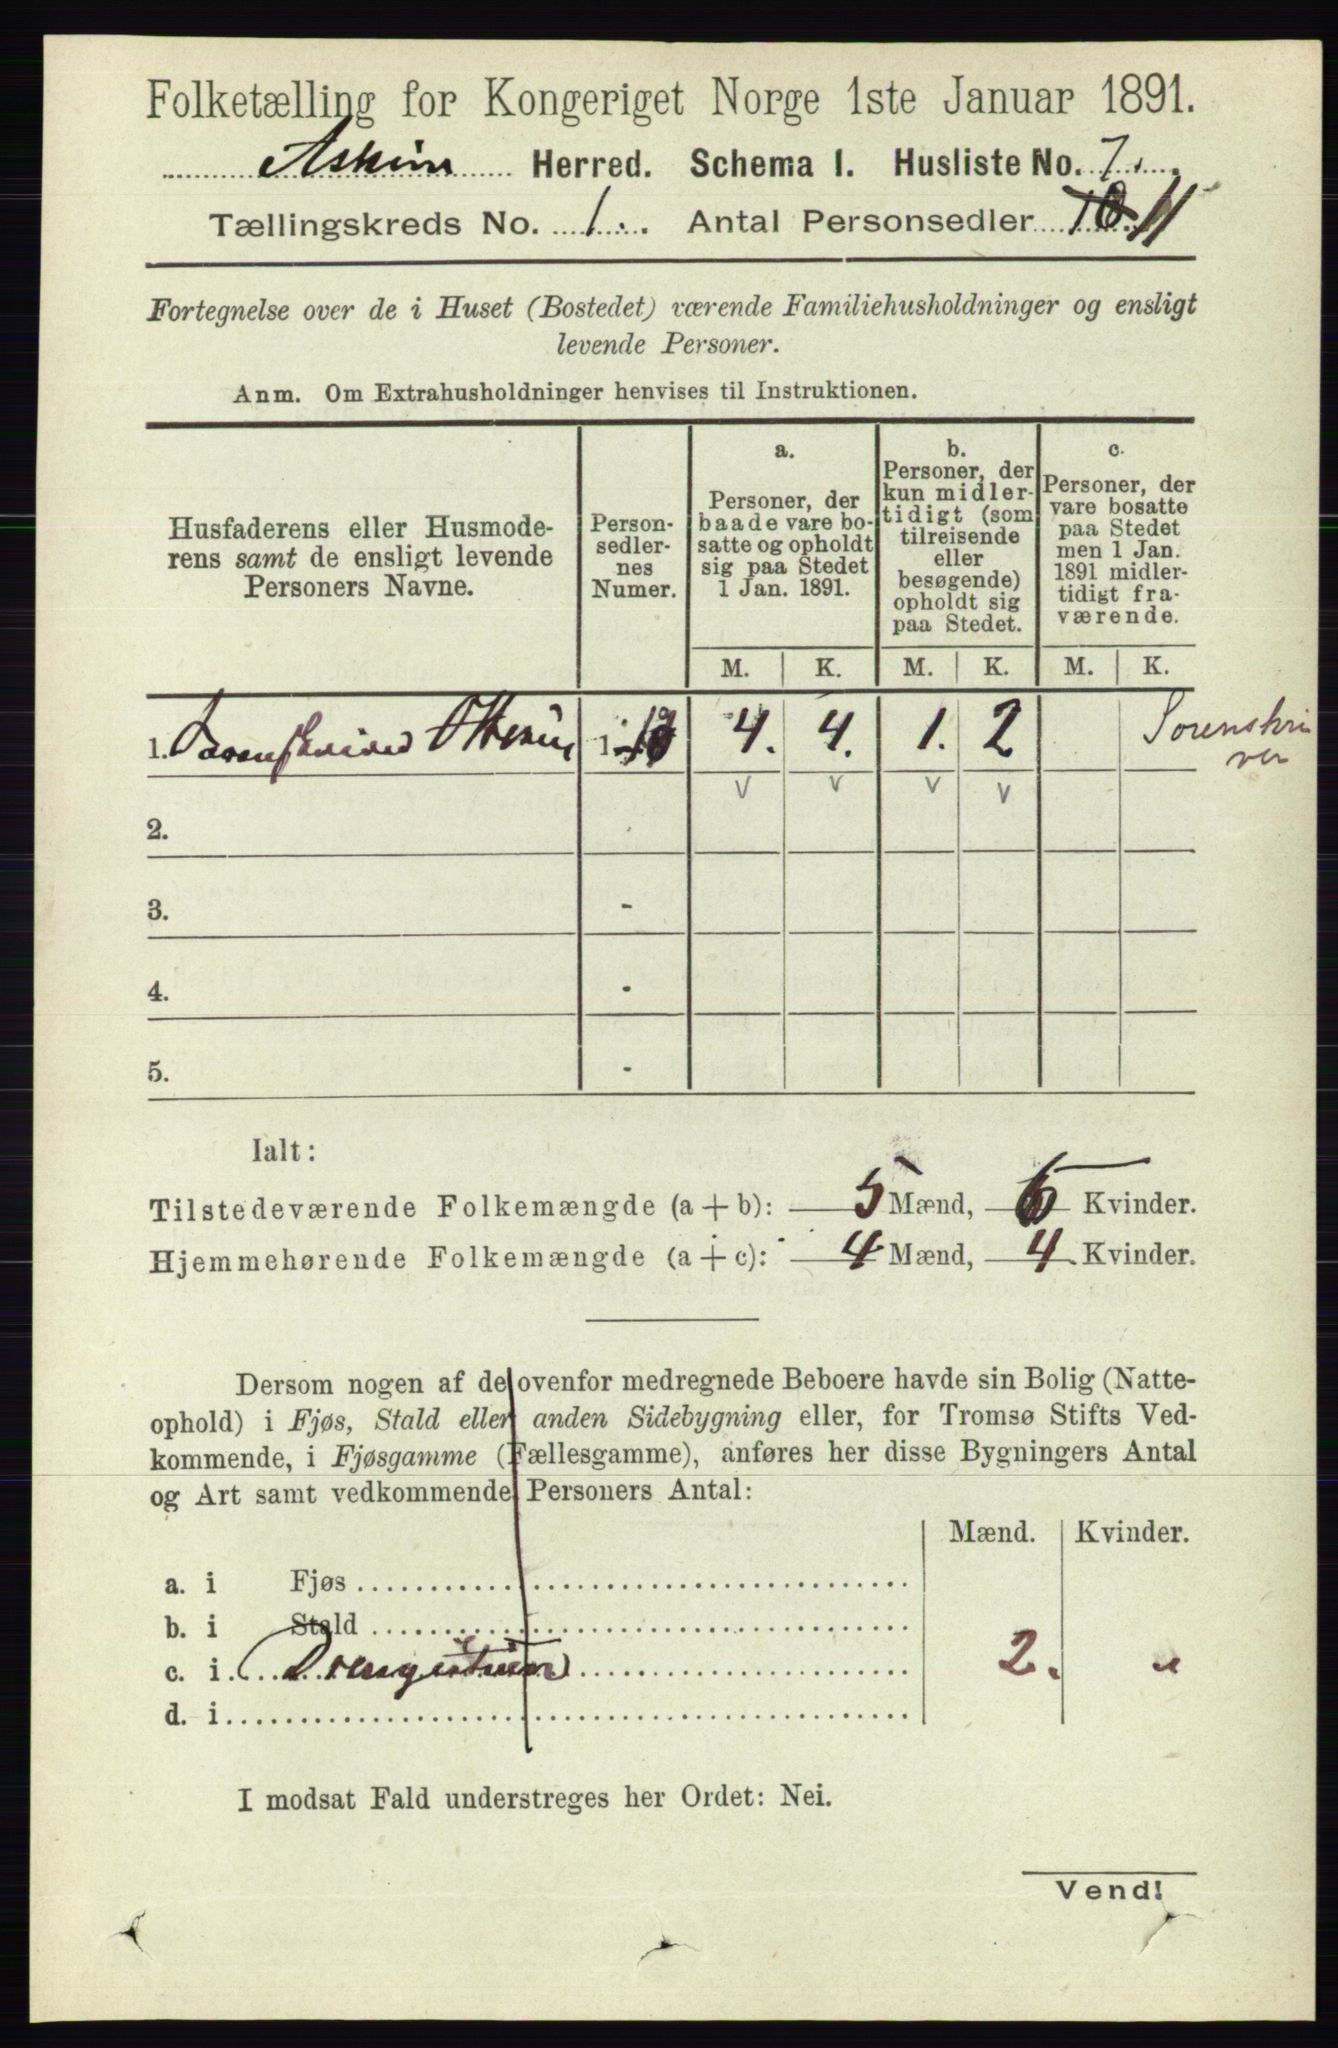 Folketælling for Kongeriget Norge 1ste Januar 1891.
Askim Herred. Schema I. Husliste No. 7.
Tællingskreds No. 1. Antal Personsedler 10 11
Fortegnelse over de i Huset (Bostedet) værende Familiehusholdninger og ensligt
levende Personer.
Anm. Om Extrahusholdninger henvises til Instruktionen.
Husfaderens eller Husmode-
rens samt de ensligt levende
Personers Navne.
Person-
sedler-
nes
Numer.
a.
Personer, der
baade vare bo-
satte og opholdt
sig paa Stedet
1 Jan. 1891.
b.
Personer, der
kun midler-
tidigt (som
tilreisende
eller
besøgende)
opholdt sig
paa Stedet.
c.
Personer, der
vare bosatte
paa Stedet
men 1 Jan.
1891 midler-
tidigt fra-
værende.
M. K. M. K. M. K.
1. Sorenskriver 1 - 4. 4. 1. 2 Sorenskri
ver
2.
3. -
4. -
5. -
Ialt:
Tilstedeværende Folkemængde (a + b): 5 Mænd, 6 Kvinder.
Hjemmehørende Folkemængde (a + c): 4 Mænd, 4 Kvinder.
Dersom nogen af de ovenfor medregnede Beboere havde sin Bolig (Natte-
ophold) i Fjøs, Stald eller anden Sidebygning eller, for Tromsø Stifts Ved-
kommende, i Fjøsgamme (Fællesgamme), anføres her disse Bygningers Antal
og Art samt vedkommende Personers Antal:
Mænd. Kvinder.
a. i Fjøs
b. i Stald
c. i Drengestuen 2. "
d. i
I modsat Fald understreges her Ordet: Nei.
Vend!